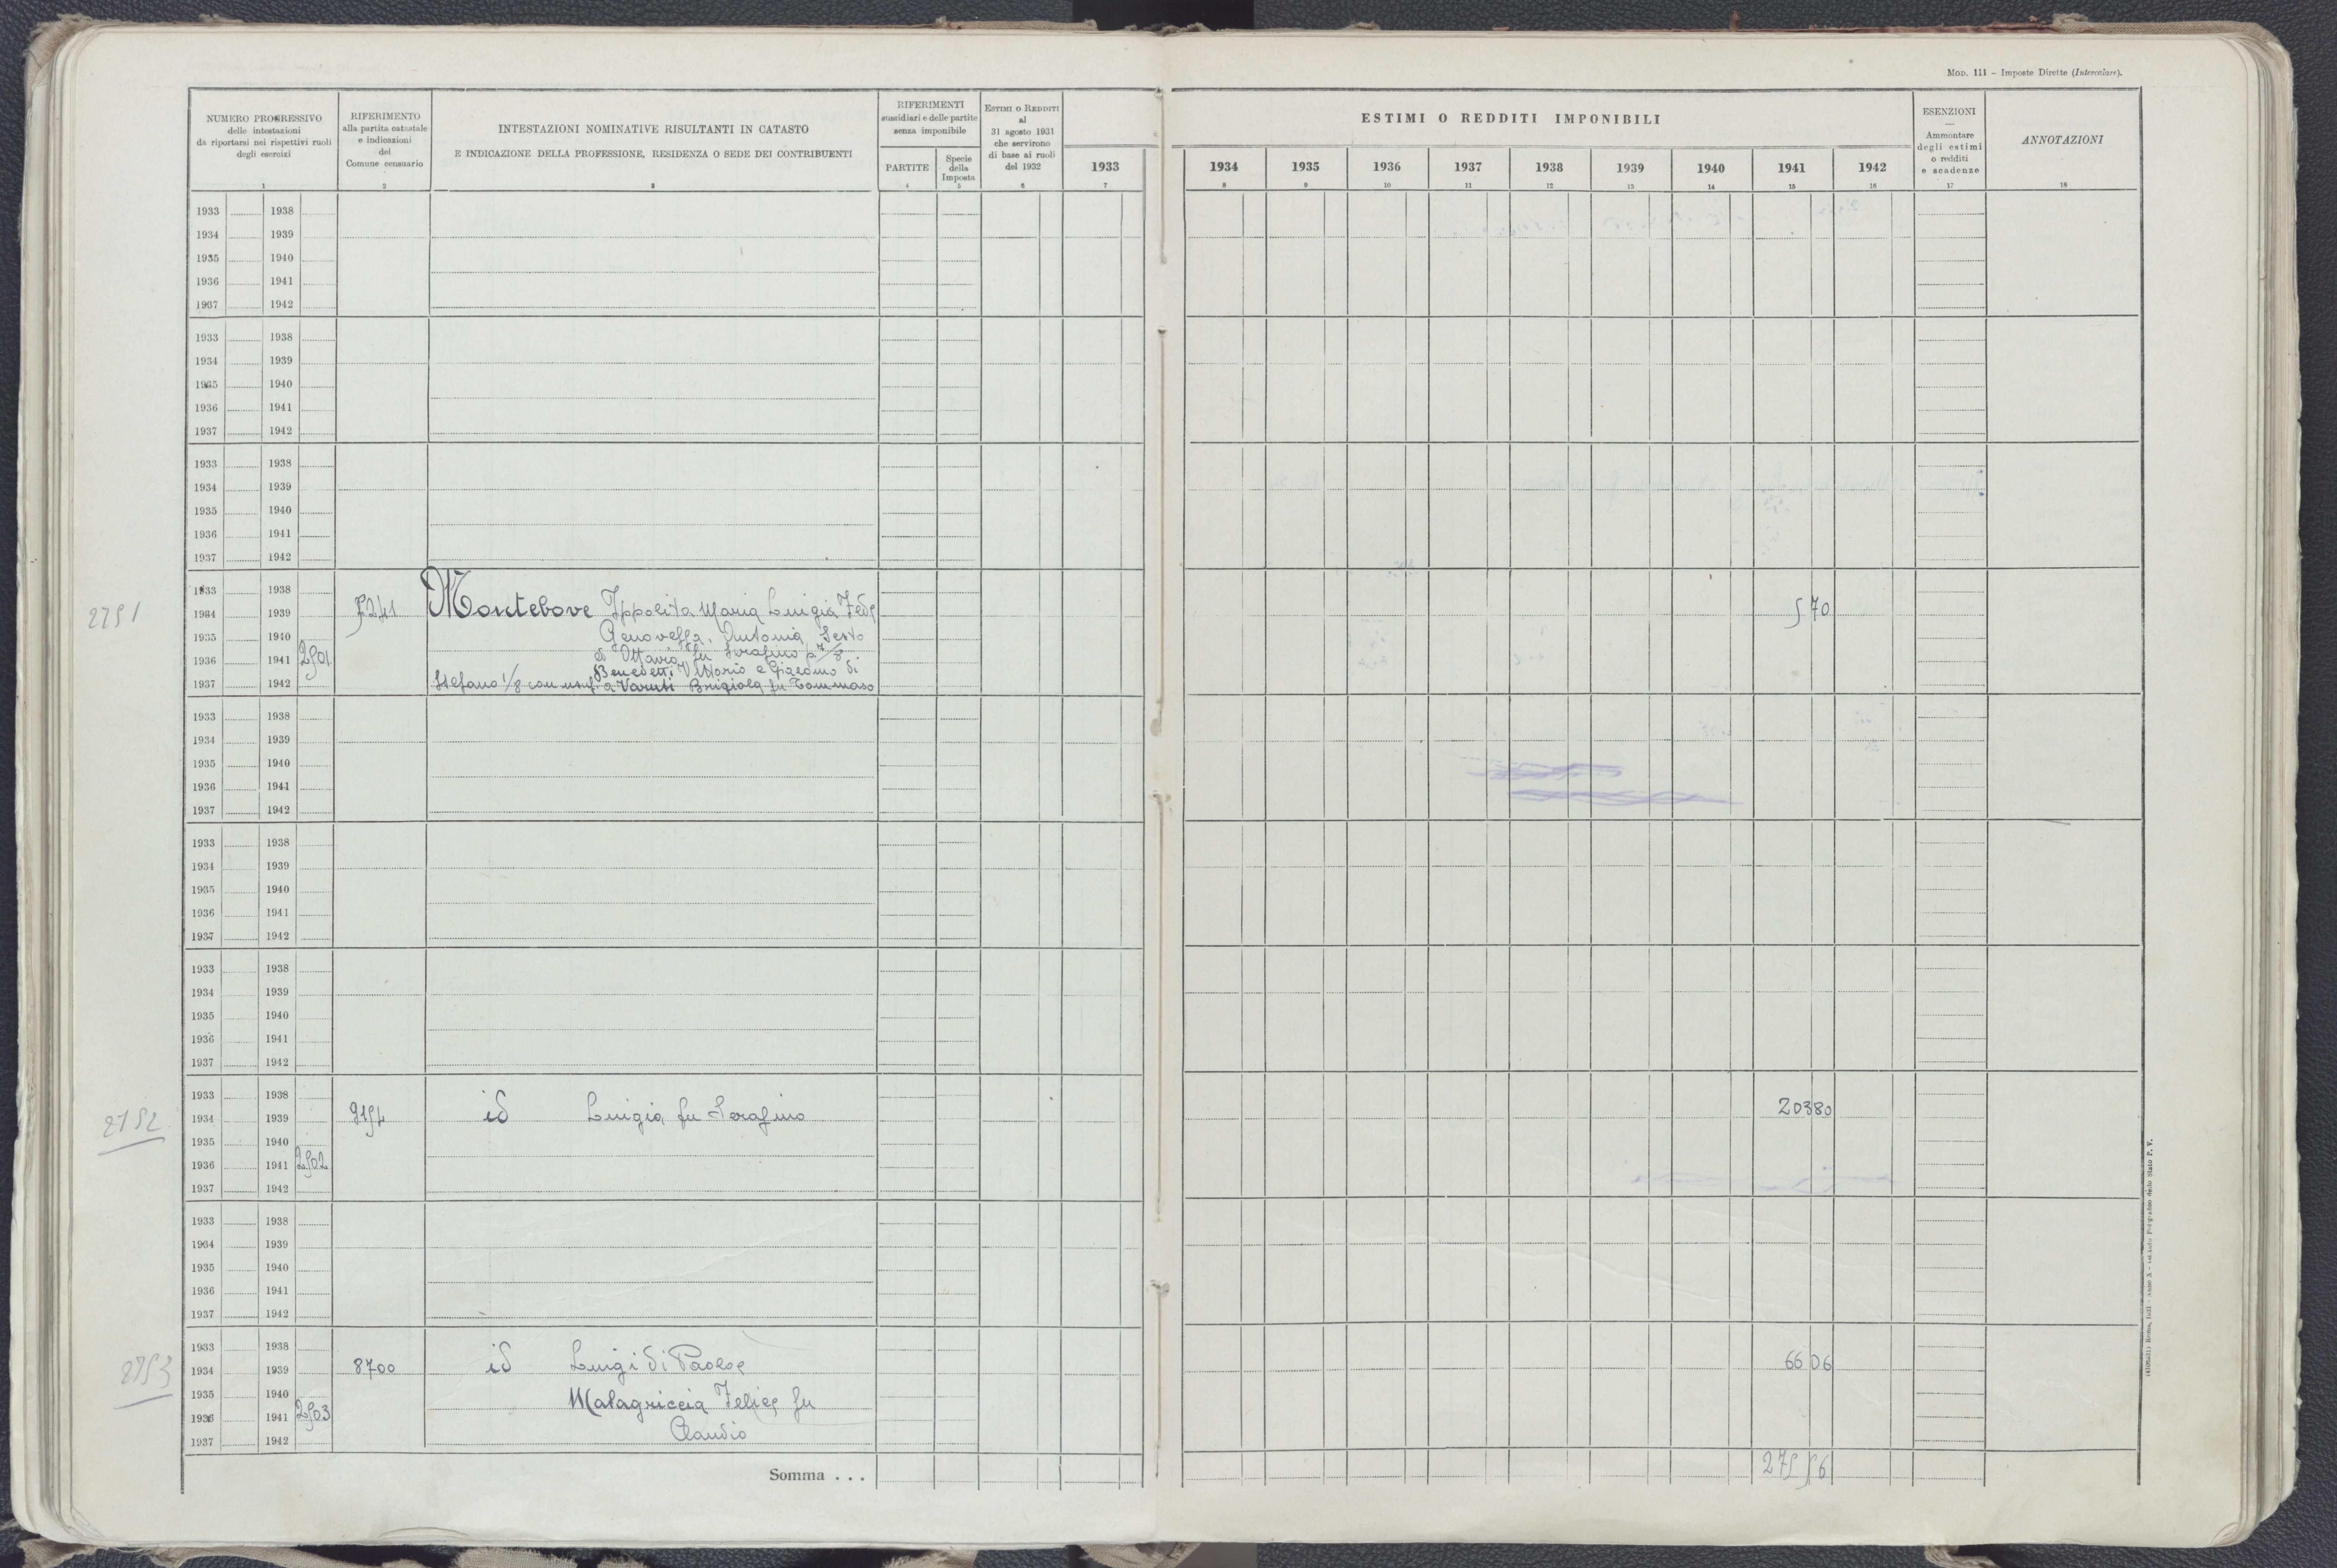 Mod. 111 – Imposte Dirette (Intercalare).
NUMERO PROGRESSIVO
delle intestazioni
da riportarsi nei rispettivi ruoli
degli esercizi
RIFERIMENTO
alla partita catastale
e indicazioni
del
Comune censuario
INTESTAZIONI NOMINATIVE RISULTANTI IN CATASTO
E INDICAZIONE DELLA PROFESSIONE, RESIDENZA O SEDE DEI CONTRIBUENTI
RIFERIMENTI
sussidiari e delle partite
senza imponibile
PARTITE
Specie
della
Imposta
Estimi o Redditi
al
31 agosto 1931
che servirono
di base ai ruoli
del 1932
ESTIMI O REDDITI IMPONIBILI
1933 1934 1935 1936 1937 1938 1939 1940 1941 1942
ESENZIONI
—
Ammontare
degli estimi
o redditi
e scadenze
ANNOTAZIONI
1 2 3 4 5 6 7 8 9 10 11 12 13 14 15 16 17 18
1933 1938
1934 1939
1935 1940
1936 1941
1937 1942
1933 1938
1934 1939
1935 1940
1936 1941
1937 1942
1933 1938
1934 1939
1935 1940
1936 1941
1937 1942
1933 1938
2751 1934 1939 5241 Montebove Ippolita Maria Luigia Fede 570
1935 1940 Genoveffa, Antonia, Sesto
1936 1941 2501 ed Ottavio fu Serafino p. 7/8
Benedetti Vittorio e Giacomo di
1937 1942 Stefano 1/8 con usuf. a Varuti Brigiola fu Tommaso
1933 1938
1934 1939
1935 1940
1936 1941
1937 1942
1933 1938
1934 1939
1935 1940
1936 1941
1937 1942
1933 1938
1934 1939
1935 1940
1936 1941
1937 1942
1933 1938
2752 1934 1939 9154 id Luigia fu Serafino 20380
1935 1940
1936 1941 2502
1937 1942
1933 1938
1934 1939
1935 1940
1936 1941
1937 1942
1933 1938
2753 1934 1939 8700 id Luigi di Paolo e 6606
1935 1940 Malagriccia Felice fu
1936 1941 2503
1937 1942 Claudio
Somma . . . 27556